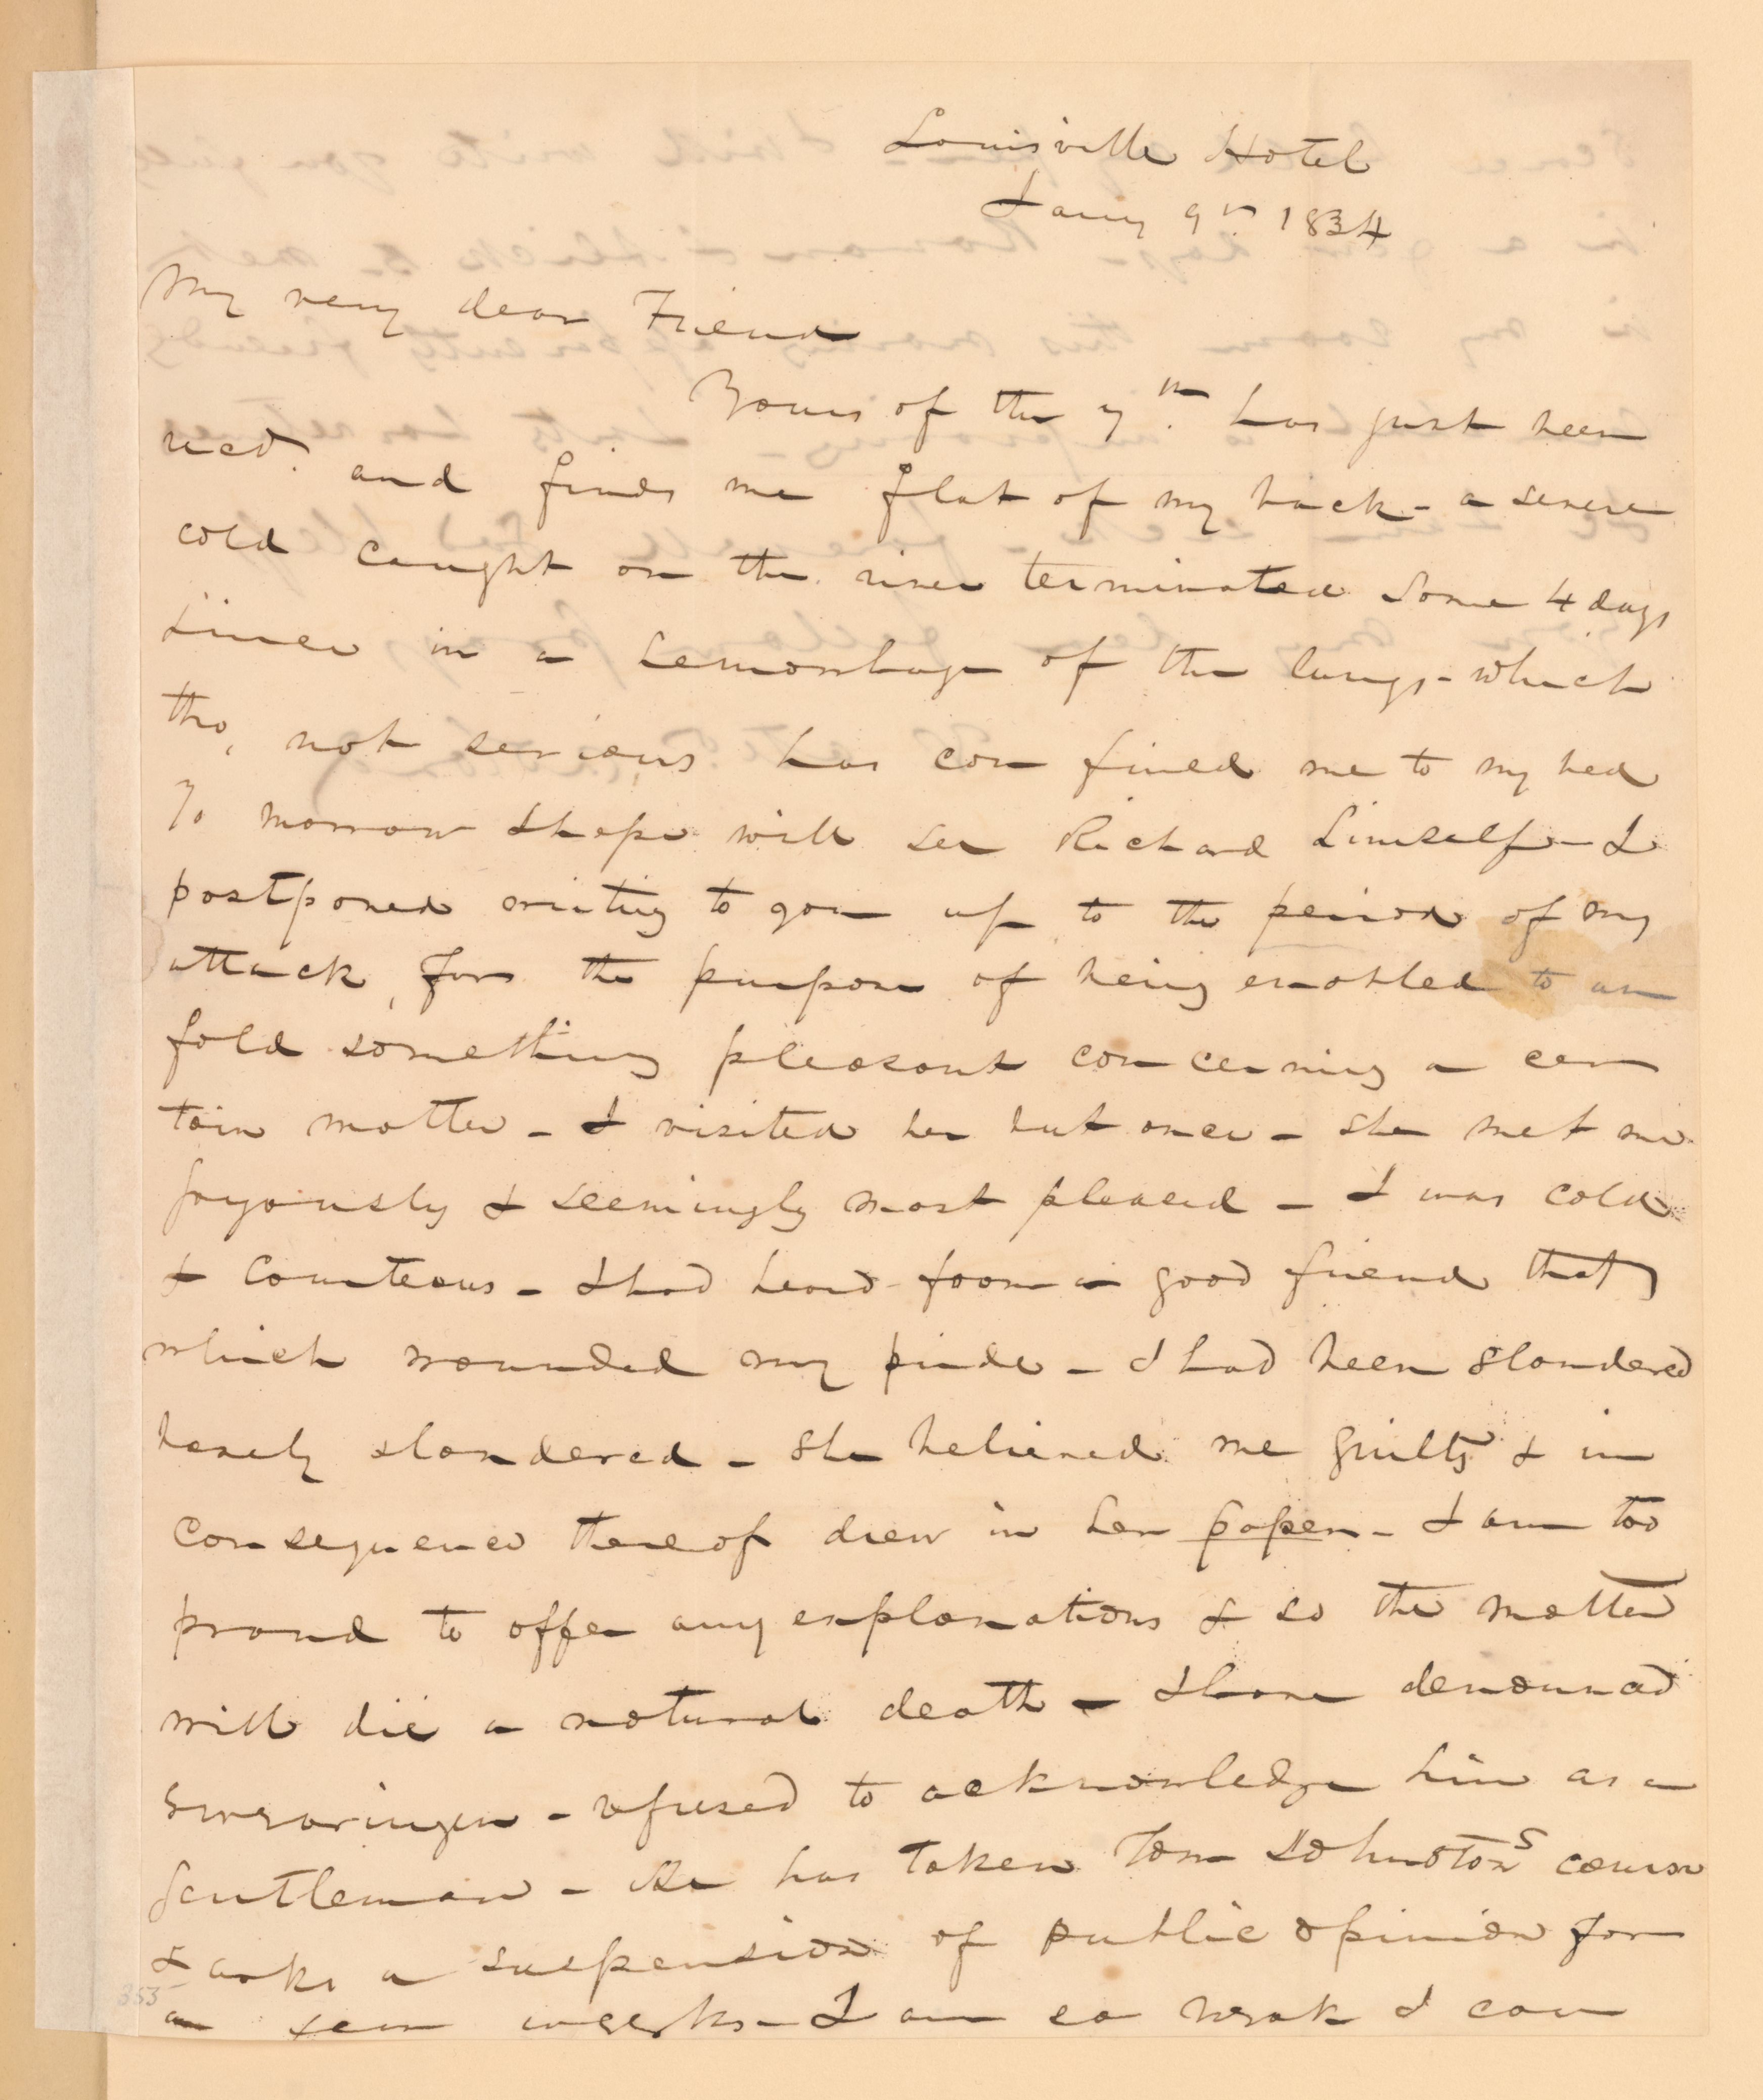 Louisville Hotel
Jany 9th 1834
My very dear Friend
Yours of the 7th has just been
recd. and finds me flat of my back - a severe
cold caught on the river terminated some 4 days
since in a hemorrhage of the lungs - which
tho, not serious has confined me to my bed
To morrow I hope will see Richard himself - I
postponed writing to you up to the period of my
attack, for the purpose of being enabled to un
fold something pleasant concerning a cer
tain matter - I visited her but once - she met me
joyously & seemingly most pleased - I was cold
& Courteous - I had heard from a good friend that
which wounded my pride - I had been slandered
basely slandered - She believed me guilty & in
consequence thereof drew in her papers - I am too
proud to offer any explanations & so the matter
will die a natural death - I have denounced
Swearingen - refused to acknowledge him as a
Gentleman - He has taken Tom Johnstons course
& asks a suspension of public opinion for
a few weeks - I am so weak I can
353